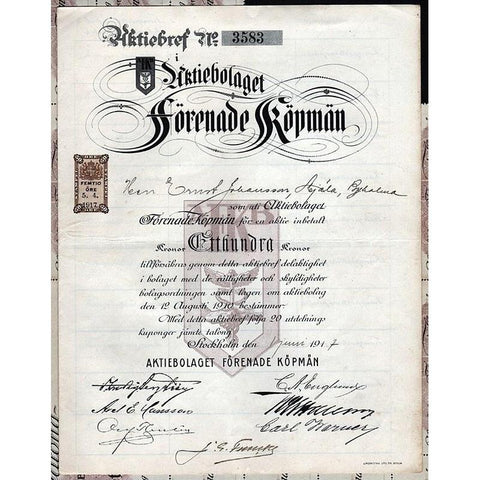 Aktiebref Nº 3583
i
Aktiebolaget
Förenade Köpmän
FEMTIO
ÖRE
5. 4.
1917
Herr Ernst Johansson
som uti Aktiebolaget
Förenade Köpmän för en aktie inbetalt
Kronor Etthundra Kronor
tillförsäkras genom detta aktiebref delaktighet
i bolaget med de rättigheter och skyldigheter
bolagsordningen samt lagen om aktiebolag
den 12 Augusti 1910 bestämmer.
Med detta aktiebref följa 20 utdelnings
kuponger jämte talong
Stockholm den juni 1917
AKTIEBOLAGET FÖRENADE KÖPMÄN
C. A. Englund
Axel E. Hansson
Carl
J. G.